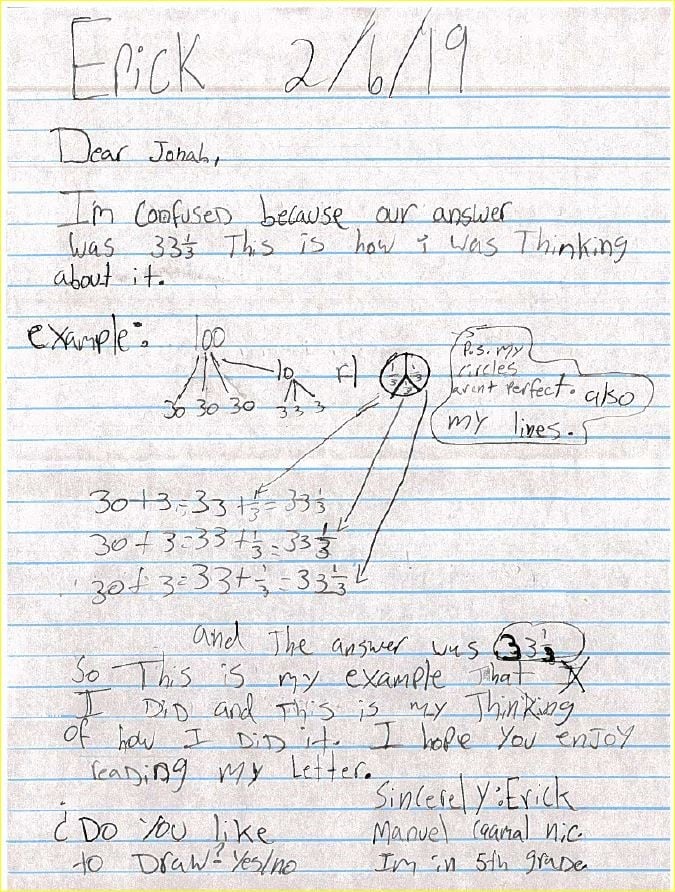 Erick 2/6/19
Dear Jonah,
I'm confused because our answer
was 33⅓ This is how i was Thinking
about it.
example: 100
30 30 30 10 r1 ⅓ ⅓ ⅓
3 3 3
P.s. my
circles
arent perfect. also
my lines.
30+3=33+⅓=33⅓
30+3=33+⅓=33⅓
30+3=33+⅓=33⅓
and The answer was 33⅓
So This is my example That
I DiD and This is my Thinking
of how I DiD it. I hope You enjoy
reading my Letter.
Sincerely: Erick
Manuel
Im in 5th grade
¿Do You like
to Draw? Yes/no